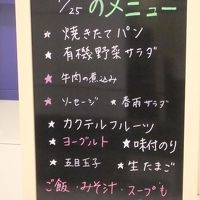 1/25 のメニュー
★ 焼きたてパン
★ 有機野菜サラダ
★ 牛肉の煮込み
★ ソーセージ ★ 春雨サラダ
★ カクテルフルーツ
★ ヨーグルト ★ 味付のり
★ 五目玉子 ★ 生たまご
ご飯・みそ汁・スープも